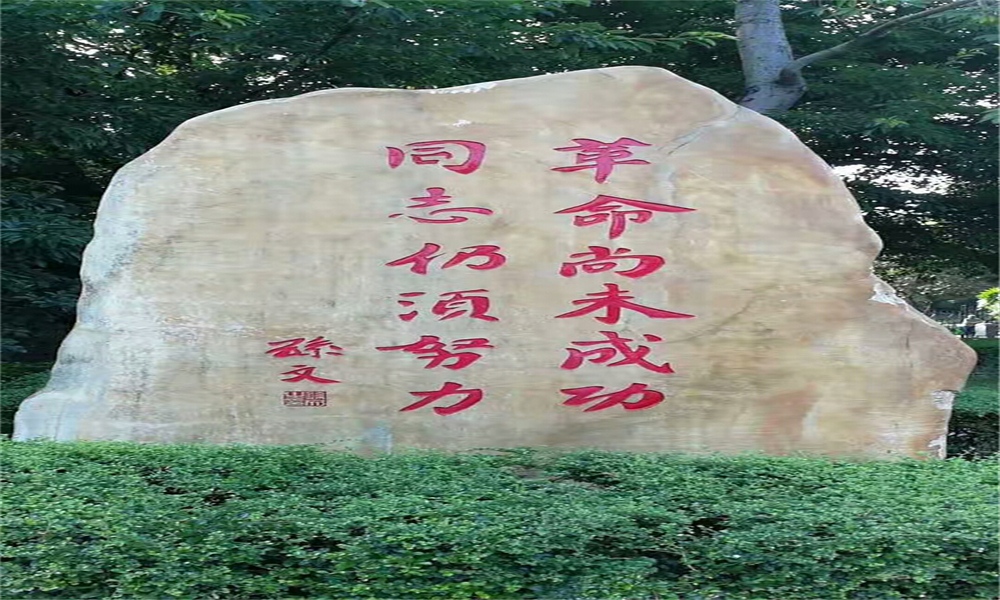 革命尚未成功
同志仍须努力
孫文